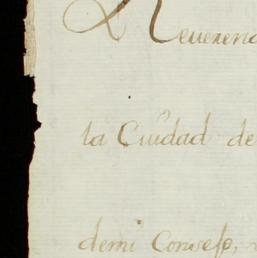 Reverend
la Ciudad de
demi Consejo,